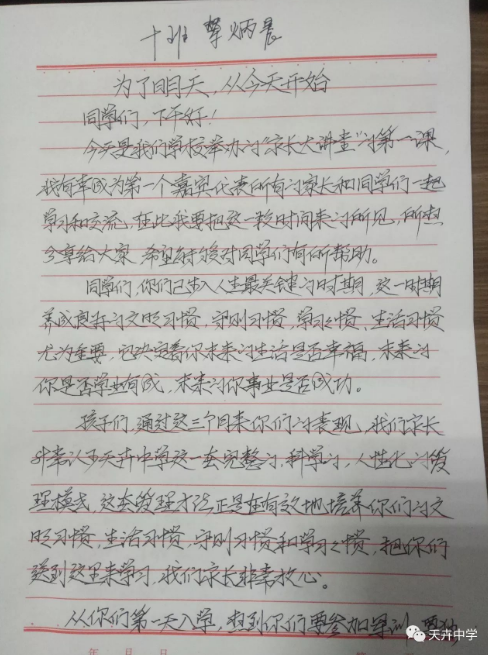 十班 黎炳晨
为了明天，从今天开始
同学们，下午好！
今天是我们学校举办的"家长大讲堂"的第一课，
我有幸成为第一个嘉宾代表所有的家长和同学们一起
学习和交流，在此我要把这一段时间来的所见，所想
分享给大家，希望能够对同学们有所帮助。
同学们，你们已步入人生最关键的时期，这一时期
养成良好的文明习惯，守则习惯，学习习惯，生活习惯
尤为重要，它决定着你未来的生活是否幸福，未来的
你是否学业有成，未来的你事业是否成功。
孩子们，通过这三个月来你们的表现，我们家长
非常认可天卉中学这一套完整的，科学的，人性化的管
理模式，这套管理方法正是在有效地培养你们的文
明习惯，生活习惯，守则习惯和学习习惯，把你们
送到这里来学习，我们家长非常放心。
从你们第一天入学，想到你们要参加军训
天卉中学
年 月 日